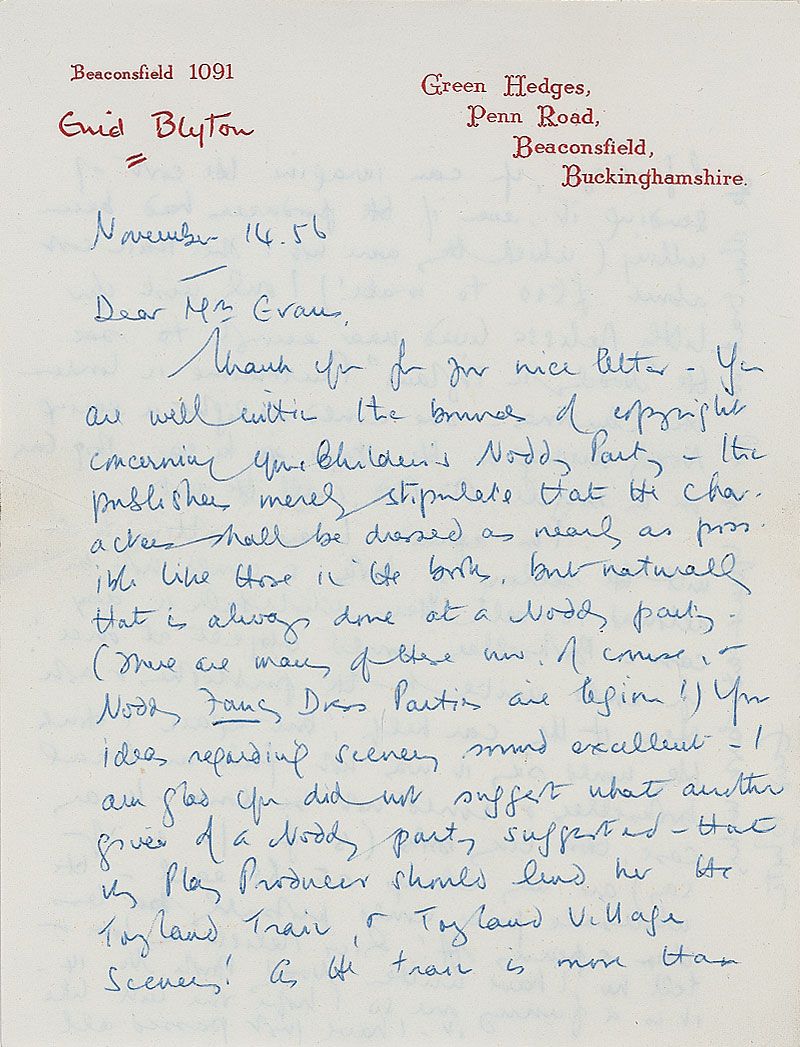 Beaconsfield 1091
Enid Blyton
Green Hedges,
Penn Road,
Beaconsfield,
Buckinghamshire.
November 14. 56
Dear Mrs Evans,
Thank you for your nice letter - You
are well within the bounds of copyright
concerning your Children's Noddy Party - the
publishers merely stipulate that the char-
acters shall be dressed as nearly as poss-
ible like those in the books, but naturally
that is always done at a Noddy party -
(There are many of these now, of course, &
Noddy Fancy Dress Parties are legion!) Your
ideas regarding scenery sound excellent - I
am glad you did not suggest what another
giver of a Noddy party suggested - that
my Play Producer should lend her the
Toyland Train, & Toyland Village
Scenery! As the train is more than